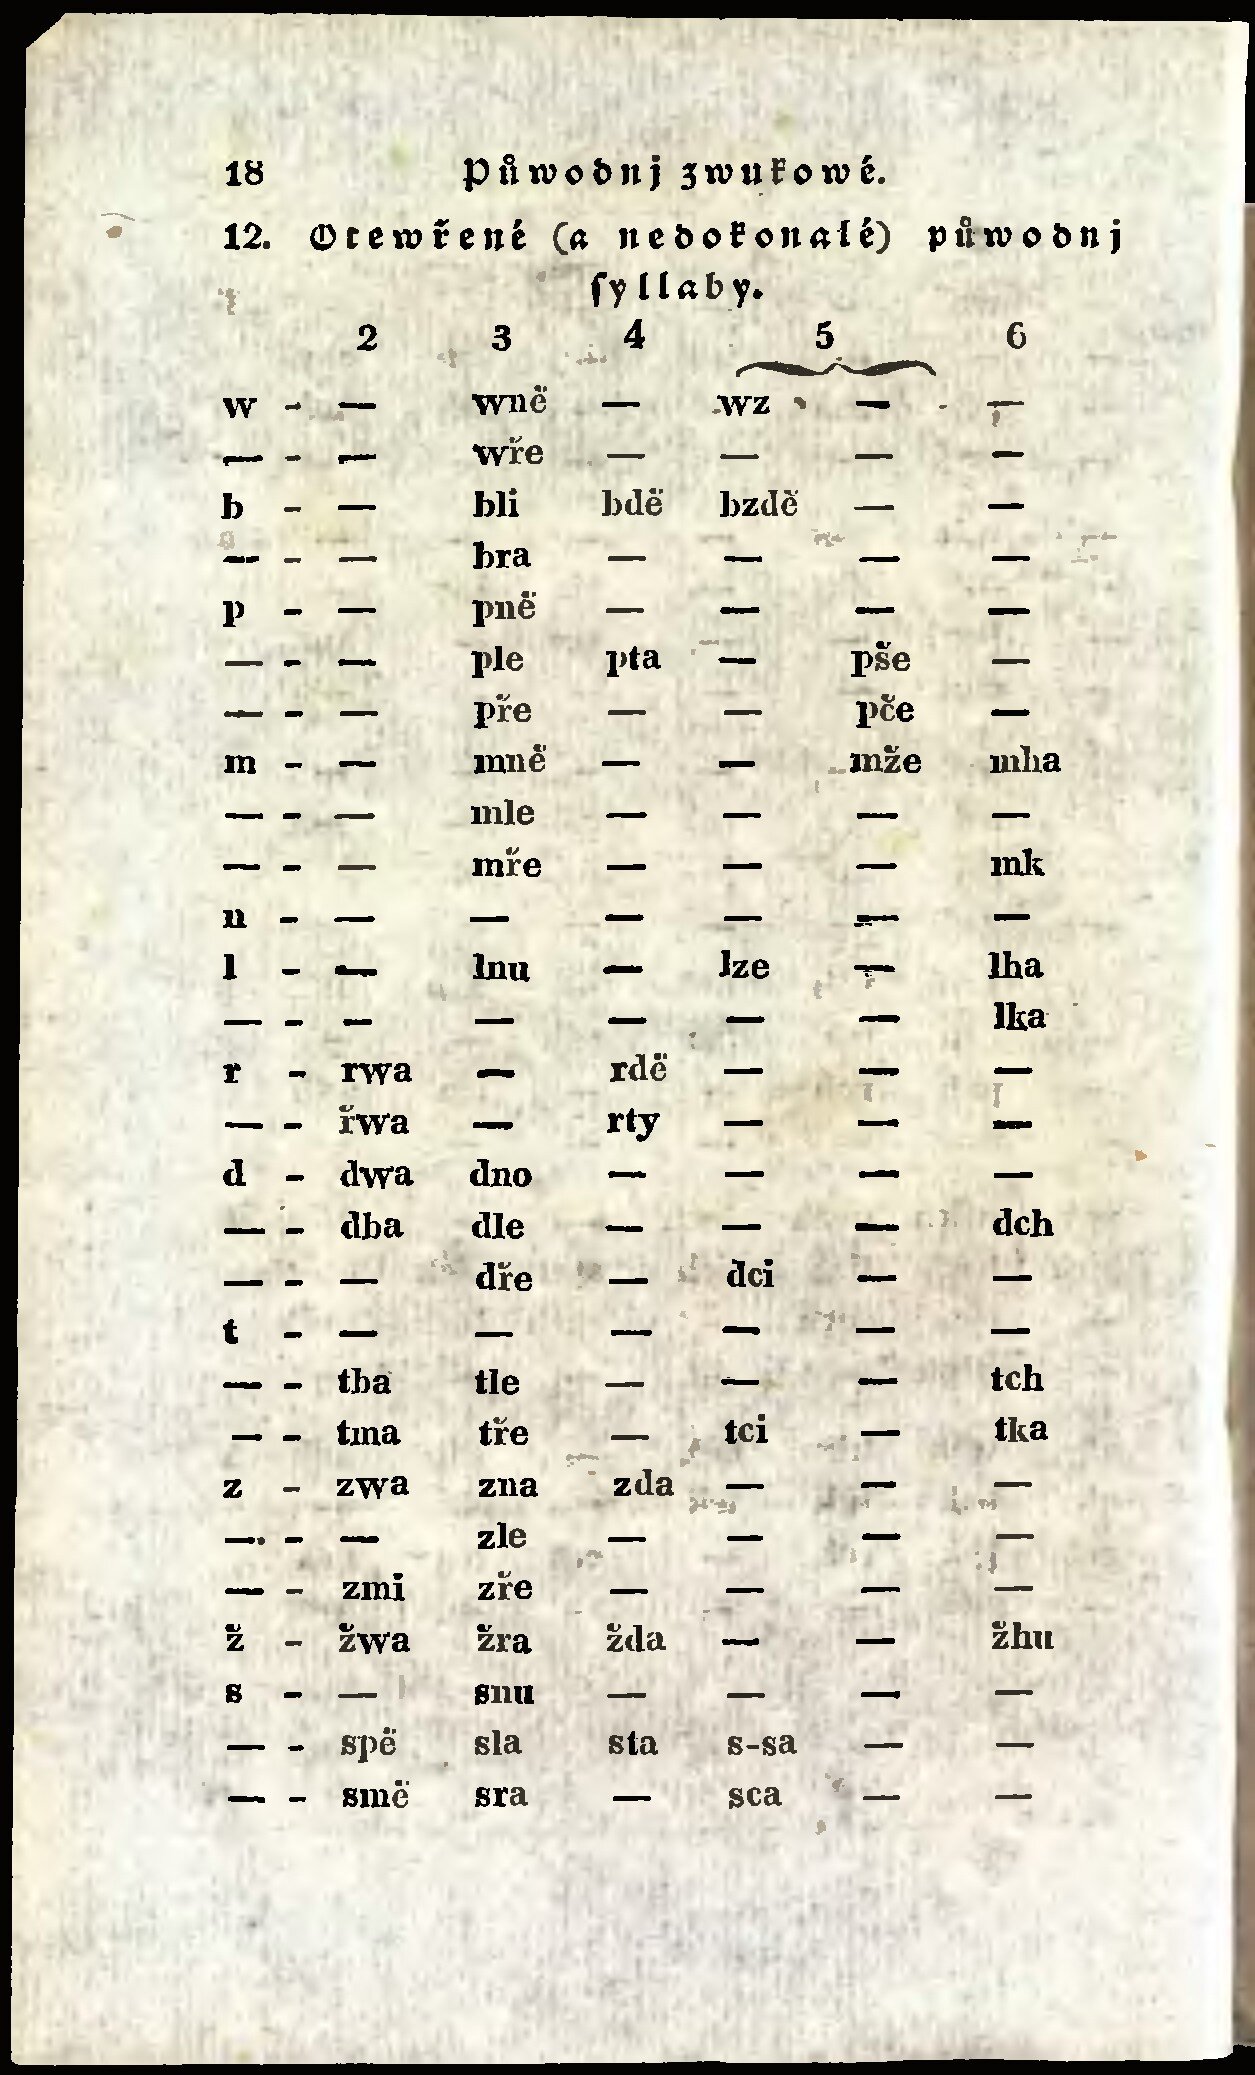 18 Půwodnj zwukowé.
12. Otewřené (a nedokonalé) půwodnj
ſyllaby.
2 3 4 5 6
w - — wnë — wz — —
— - — wře — — — —
b - — bli bdë bzdë — —
— - — bra — — — —
p - — pnë — — — —
— - — ple pta — pše —
— - — pře — — pče —
m - — mnë — — mže mha
— - — mle — — — —
— - — mře — — — mk
n - — — — — — —
l - — lnu — lze — lha
— - – — — — — lka
r - rwa — rdë — — —
— - řwa — rty — — —
d - dwa dno — — — —
— - dba dle — — — dch
— - — dře — dci — —
t - — — — — — —
— - tba tle — — — tch
— - tma tře — tci — tka
z - zwa zna zda — — —
— - — zle — — — —
— - zmi zře — — — —
ž - žwa žra žda — — žhu
s - — snu — — — —
— - spë sla sta s-sa — —
— - smë sra — sca — —